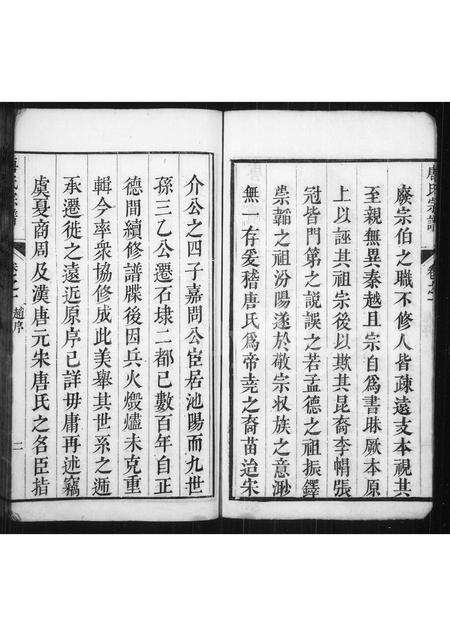 唐氏宗譜
卷之一
廢宗伯之職不修人皆疎遠支本視其
至親無異秦越且宗自爲書昧厥本原
上以誣其祖宗後以欺其昆裔李帽張
冠皆門第之説誤之若孟德之祖振鐸
崇韜之祖汾陽遂於敬宗収族之意渺
無一存爰稽唐氏爲帝堯之裔苗迨宋
介公之四子嘉問公臣居池陽而九世
孫三乙公遷石埭二都已數百年自正
德間續修譜牒後因兵火燬燼未克重
輯今率衆協修成此美舉其世系之遞
承遷徙之遠近原序已詳毋庸再述竊
虞夏商周及漢唐元朱唐氏之名臣指
趙序
二